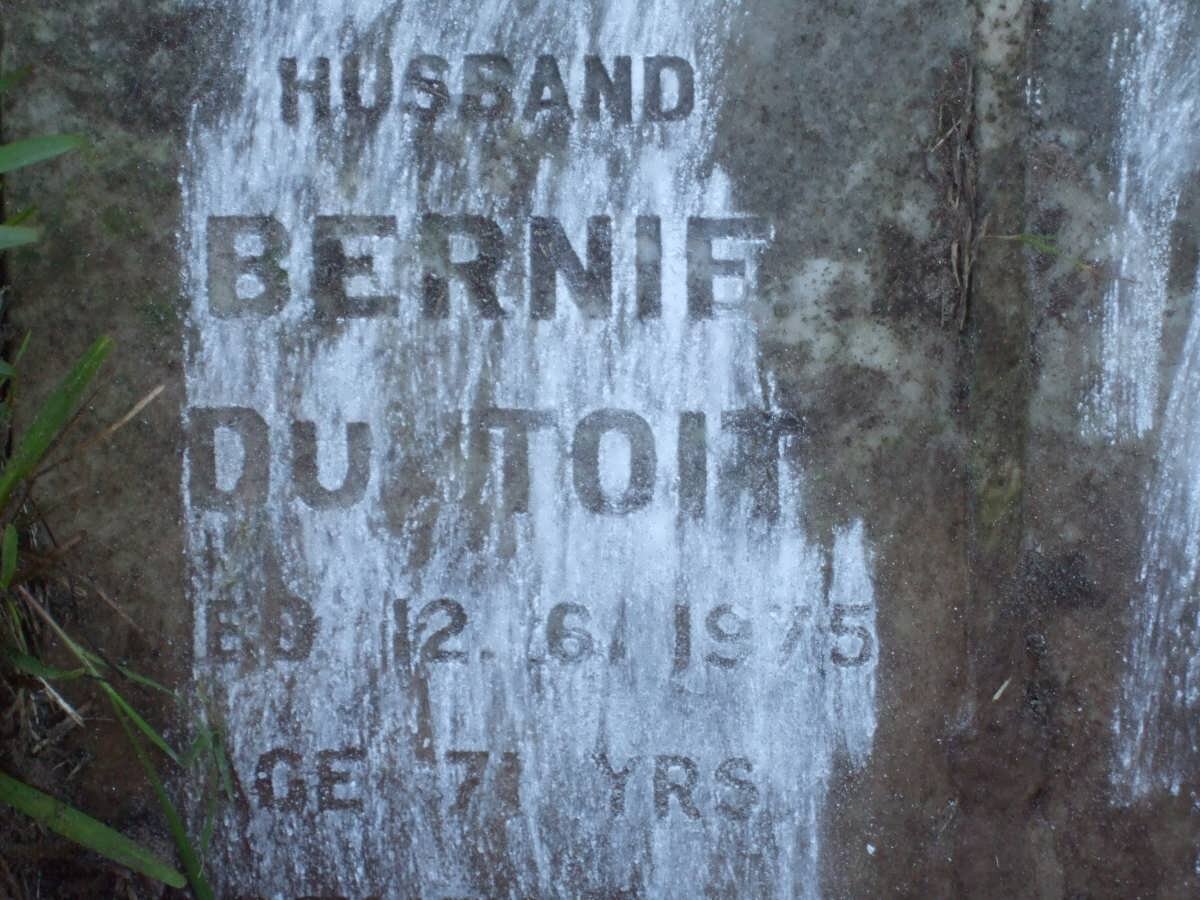 HUSBAND
BERNIE
DU TOIT
ED 12. 6. 1975
GE 71 YRS